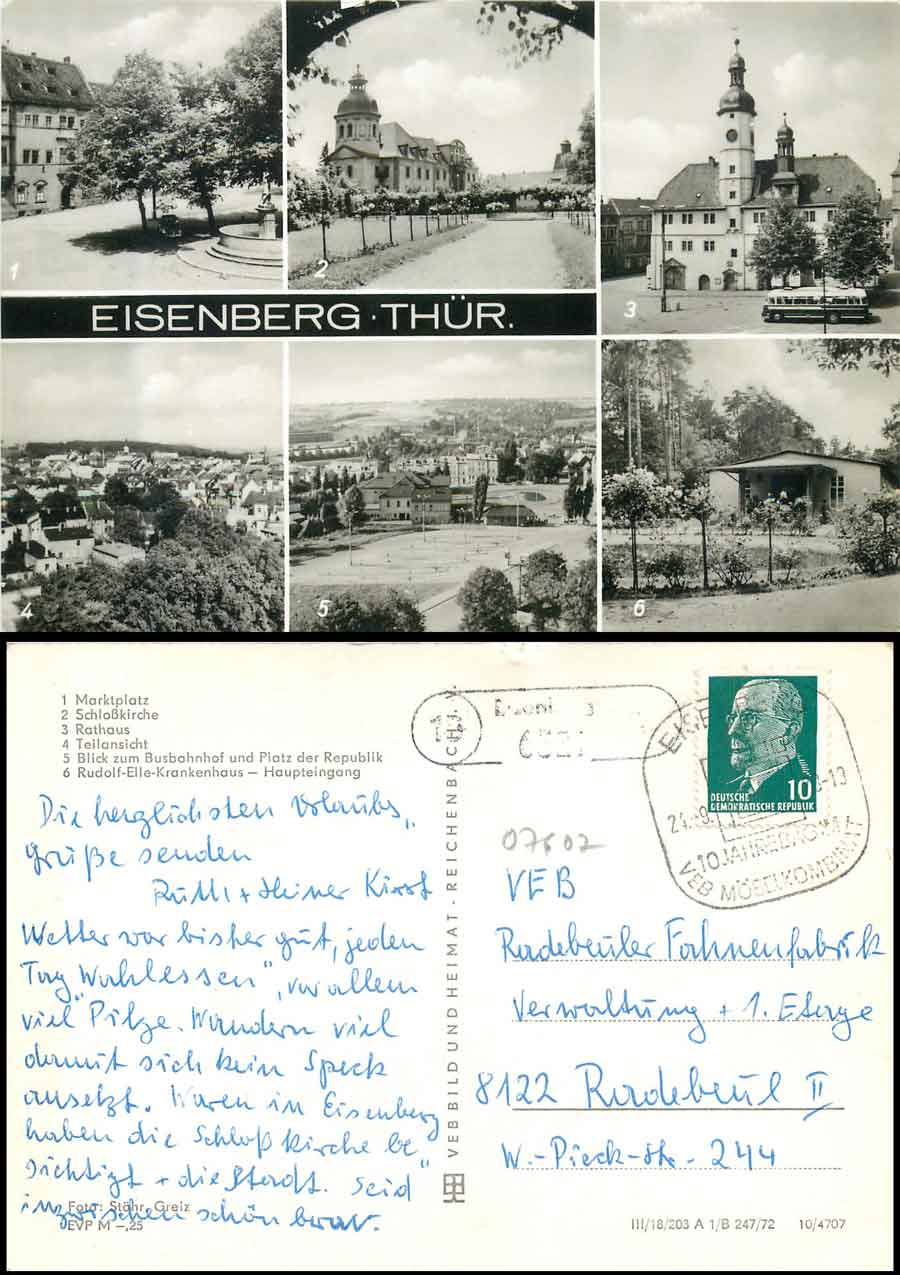 1
2
3
EISENBERG · THÜR.
4
5
6
1 Marktplatz
2 Schloßkirche
3 Rathaus
4 Teilansicht
5 Blick zum Busbahnhof und Platz der Republik
6 Rudolf-Elle-Krankenhaus – Haupteingang
Die herzlichsten Urlaubs„
grüße senden
Ruth + Heiner Kirst
Wetter war bisher gut, jeden
Tag „Wahlessen“, vor allem
viel Pilze. Wandern viel
damit sich kein Speck
ansetzt. Waren in Eisenberg
haben die Schloßkirche be„
sichtigt + die Stadt. Seid
inzwischen schön brav.
Foto: Stöhr, Greiz
EVP M –,25
VEB BILD UND HEIMAT · REICHENBACH i. V.
DEUTSCHE
DEMOKRATISCHE REPUBLIK
10
10 JAHRE
VEB MÖBELKOMBINAT
07602
VEB
Radebeuler Fahnenfabrik
Verwaltung + 1. Etage
8122 Radebeul II
W.-Pieck-Str. 244
III/18/203 A 1/B 247/72 10/4707